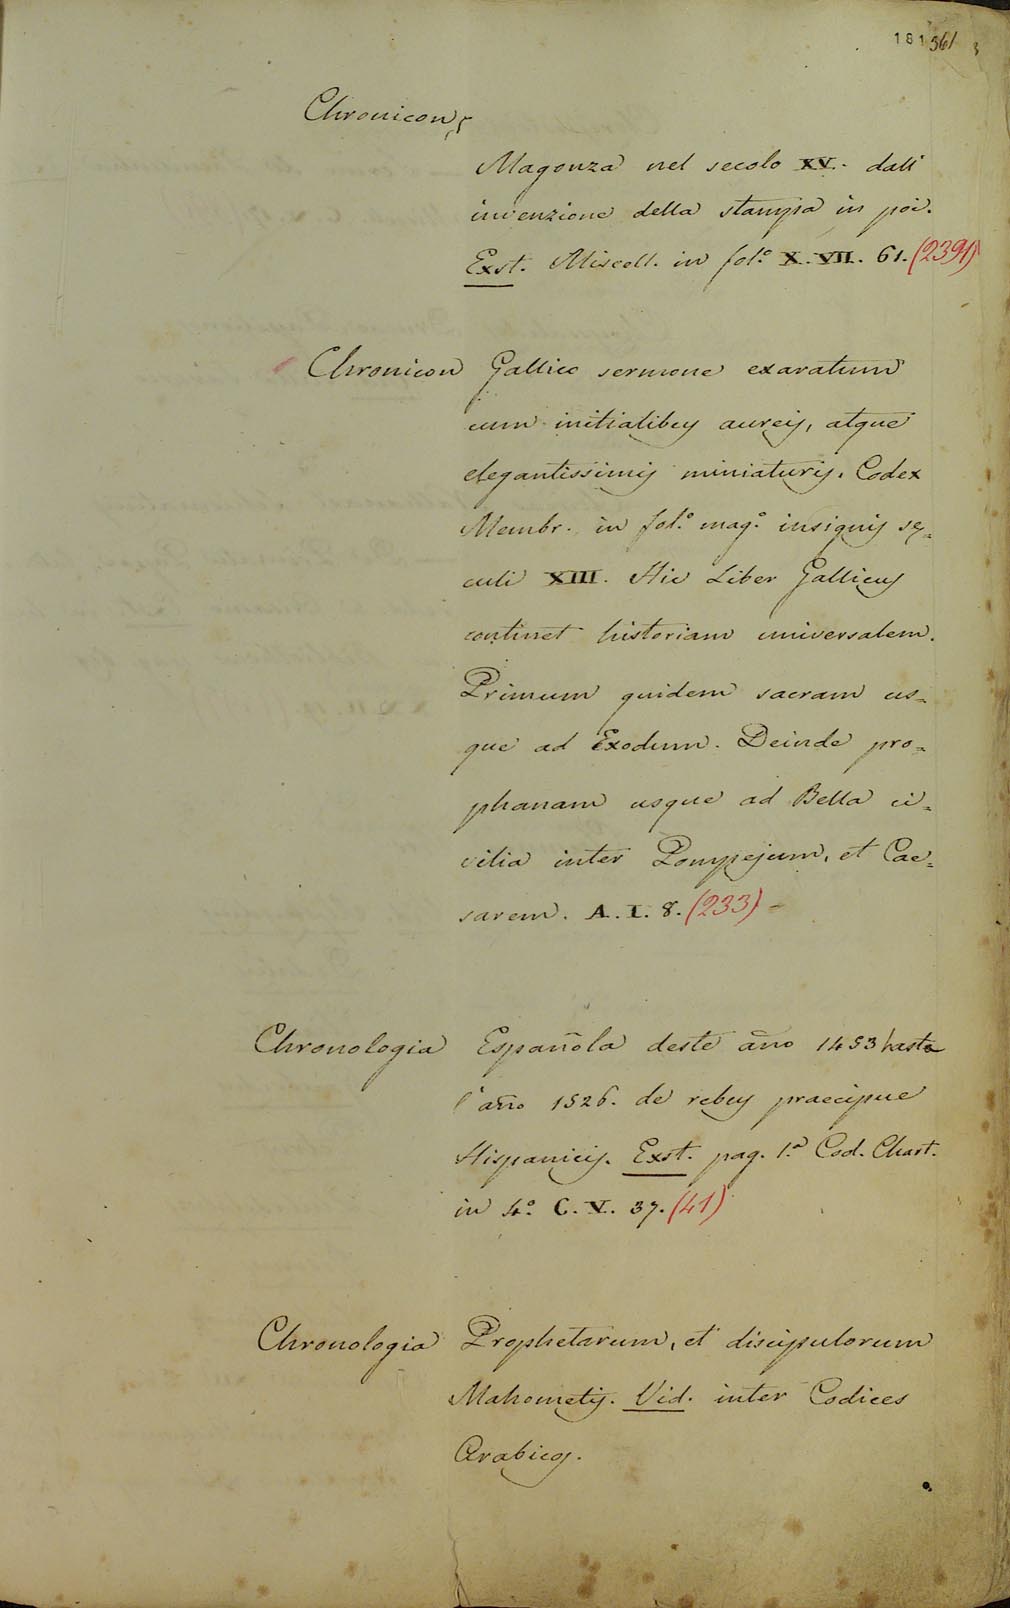 181 361
Chronicon
Magonza nel secolo XV. dall'
invenzione della stampa in poi.
Exst. Miscell. in fol.º X. VII. 61. (2391)
Chronicon Gallico sermone exaratum
cum initialibus aureis, atque
elegantissimis miniaturis. Codex
Membr. in fol.º mag.º insignis sę=
culi XIII. Hic Liber Gallicus
continet historiam universalem.
Primum quidem sacram us=
que ad Exodum. Deinde pro=
phanam usque ad Bella ci=
vilia inter Pompejum, et Cae=
sarem. A. I. 8. (233)
Chronologia Española deste año 1453 hasta
l'año 1526. de rebus praecipue
Hispanicis. Exst. pag. 1.ª Cod. Chart.
in 4.º C. V. 37. (41)
Chronologia Prophetarum, et discipulorum
Mahometis. Vid. inter Codices
Arabicos.